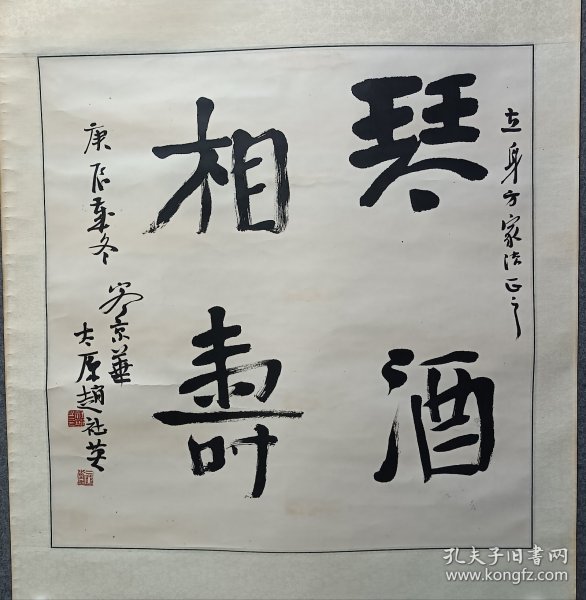 琴酒
相壽
身方家法正之
庚辰
冬
京華
太原趙社英
孔夫子旧书网
www.kongfz.com